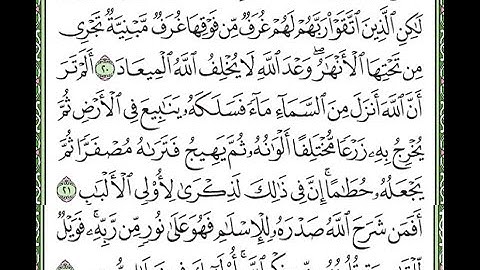 لَٰكِنِ ٱلَّذِينَ ٱتَّقَوْا۟ رَبَّهُمْ لَهُمْ غُرَفٌ مِّن فَوْقِهَا غُرَفٌ مَّبْنِيَّةٌ تَجْرِى
مِن تَحْتِهَا ٱلْأَنْهَٰرُ ۖ وَعْدَ ٱللَّهِ لَا يُخْلِفُ ٱللَّهُ ٱلْمِيعَادَ ٢٠ أَلَمْ تَرَ
أَنَّ ٱللَّهَ أَنزَلَ مِنَ ٱلسَّمَآءِ مَآءً فَسَلَكَهُۥ يَنَٰبِيعَ فِى ٱلْأَرْضِ ثُمَّ
يُخْرِجُ بِهِۦ زَرْعًا مُّخْتَلِفًا أَلْوَٰنُهُۥ ثُمَّ يَهِيجُ فَتَرَىٰهُ مُصْفَرًّا ثُمَّ
يَجْعَلُهُۥ حُطَٰمًا ۚ إِنَّ فِى ذَٰلِكَ لَذِكْرَىٰ لِأُو۟لِى ٱلْأَلْبَٰبِ ٢١
أَفَمَن شَرَحَ ٱللَّهُ صَدْرَهُۥ لِلْإِسْلَٰمِ فَهُوَ عَلَىٰ نُورٍ مِّن رَّبِّهِۦ ۚ فَوَيْلٌ